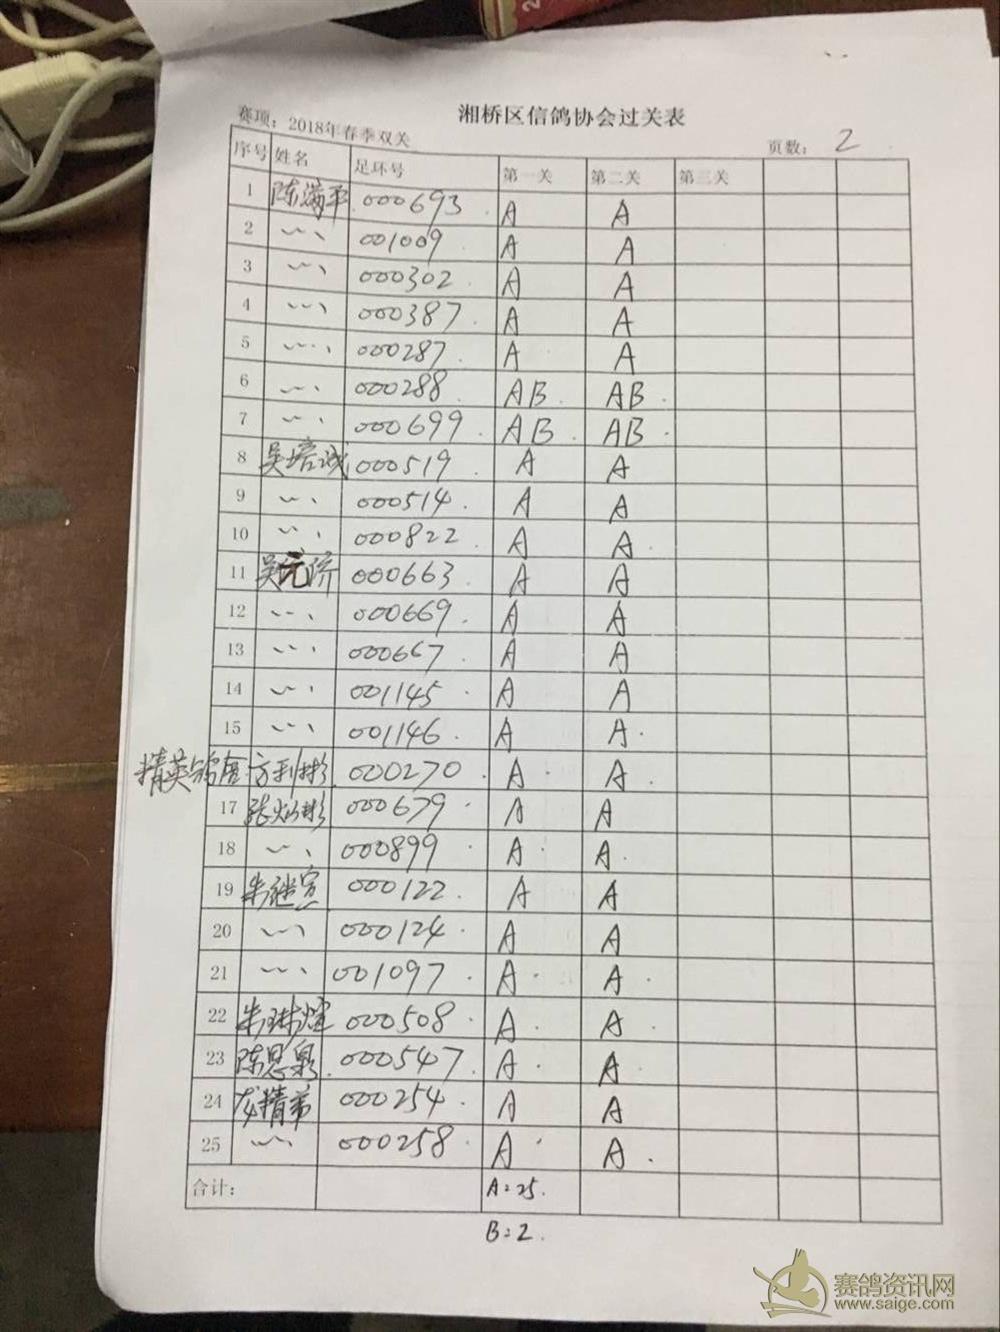 湘桥区信鸽协会过关表
赛项：2018年春季双关 页数： 2
序号 姓名 足环号 第一关 第二关 第三关
1 陈满平 000693 A A
2 〃 001009 A A
3 〃 000302 A A
4 〃 000387 A A
5 〃 000287 A A
6 〃 000288 AB AB
7 〃 000699 AB AB
8 吴培诚 000519 A A
9 〃 000514 A A
10 〃 000822 A A
11 吴元济 000663 A A
12 〃 000669 A A
13 〃 000667 A A
14 〃 001145 A A
15 〃 001146 A A
精英鸽舍 方利彬 000270 A A
17 张灿彬 000679 A A
18 〃 000899 A A
19 朱继宣 000122 A A
20 〃 000124 A A
21 〃 001097 A A
22 朱琳煌 000508 A A
23 陈思泉 000547 A A
24 龙精弟 000254 A A
25 〃 000258 A A
合计： A=25.
B=2.
赛鸽资讯网
www.saige.com